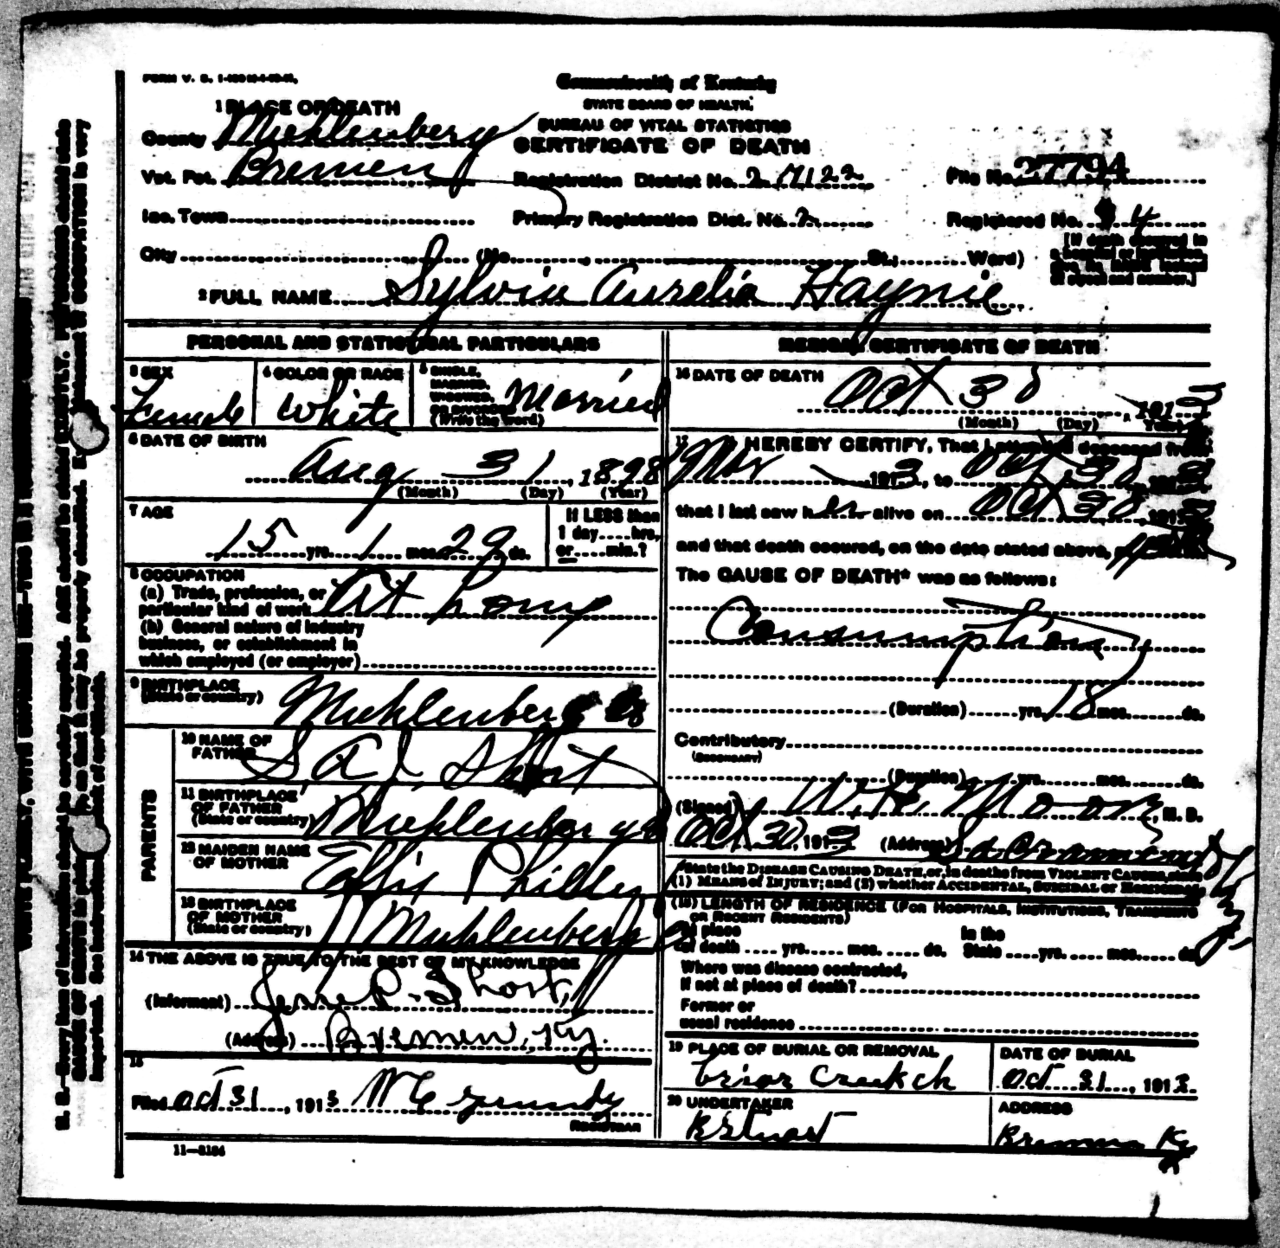 FORM V. S.
Commonwealth of Kentucky
STATE BOARD OF HEALTH.
BUREAU OF VITAL STATISTICS
CERTIFICATE OF DEATH
1 PLACE OF DEATH
County Muhlenberg
Vot. Pct. Bremen
Registration District No. 2 17122
File No. 27794
Inc. Town
Primary Registration Dist. No. 2
Registered No. 4
City (No. St.; Ward)
2 FULL NAME Sylvia Aurelia Haynie
PERSONAL AND STATISTICAL PARTICULARS
3 SEX
Female
4 COLOR OR RACE
White
5 SINGLE, MARRIED, WIDOWED, OR DIVORCED (Write the word)
Married
6 DATE OF BIRTH
Aug 31, 1898
(Month) (Day) (Year)
7 AGE
15 yrs. 1 mos. 29 ds.
If LESS than 1 day....hrs. or....min.?
8 OCCUPATION
(a) Trade, profession, or
particular kind of work At home
(b) General nature of industry
business, or establishment in
which employed (or employer)
9 BIRTHPLACE
(State or country) Muhlenberg Co
PARENTS
10 NAME OF
FATHER S. A. J. Short
11 BIRTHPLACE
OF FATHER
(State or country) Muhlenberg
12 MAIDEN NAME
OF MOTHER
13 BIRTHPLACE
OF MOTHER
(State or country) Muhlenberg
14 THE ABOVE IS TRUE TO THE BEST OF MY KNOWLEDGE
(Informant) Jesse P. Short,
(Address) Bremen, Ky.
15
Filed Oct 31, 191
REGISTRAR
11—8184
MEDICAL CERTIFICATE OF DEATH
16 DATE OF DEATH
Oct 30, 1913
(Month) (Day) (Year)
17 I HEREBY CERTIFY, That I attended deceased from
1913, to Oct 30, 1913
that I last saw her alive on Oct 30, 1913
and that death occured, on the date stated above,
The CAUSE OF DEATH* was as follows:
Consumption
(Duration) yrs. 18 mos. ds.
Contributory
(SECONDARY)
(Duration) yrs. mos. ds.
(Signed) Moore, M. D.
Oct 30, 1913 (Address) Sacramento Ky.
*State the DISEASE CAUSING DEATH, or, in deaths from VIOLENT CAUSES, state
(1) MEANS OF INJURY; and (2) whether ACCIDENTAL, SUICIDAL or HOMICIDAL
(18) LENGTH OF RESIDENCE (FOR HOSPITALS, INSTITUTIONS, TRANSIENTS
OR RECENT RESIDENTS)
At place of death yrs. mos. ds. In the State yrs. mos. ds.
Where was disease contracted,
if not at place of death?
Former or
usual residence
19 PLACE OF BURIAL OR REMOVAL
Briar Creek ch
DATE OF BURIAL
Oct 31, 1913
20 UNDERTAKER
ADDRESS
Bremen Ky